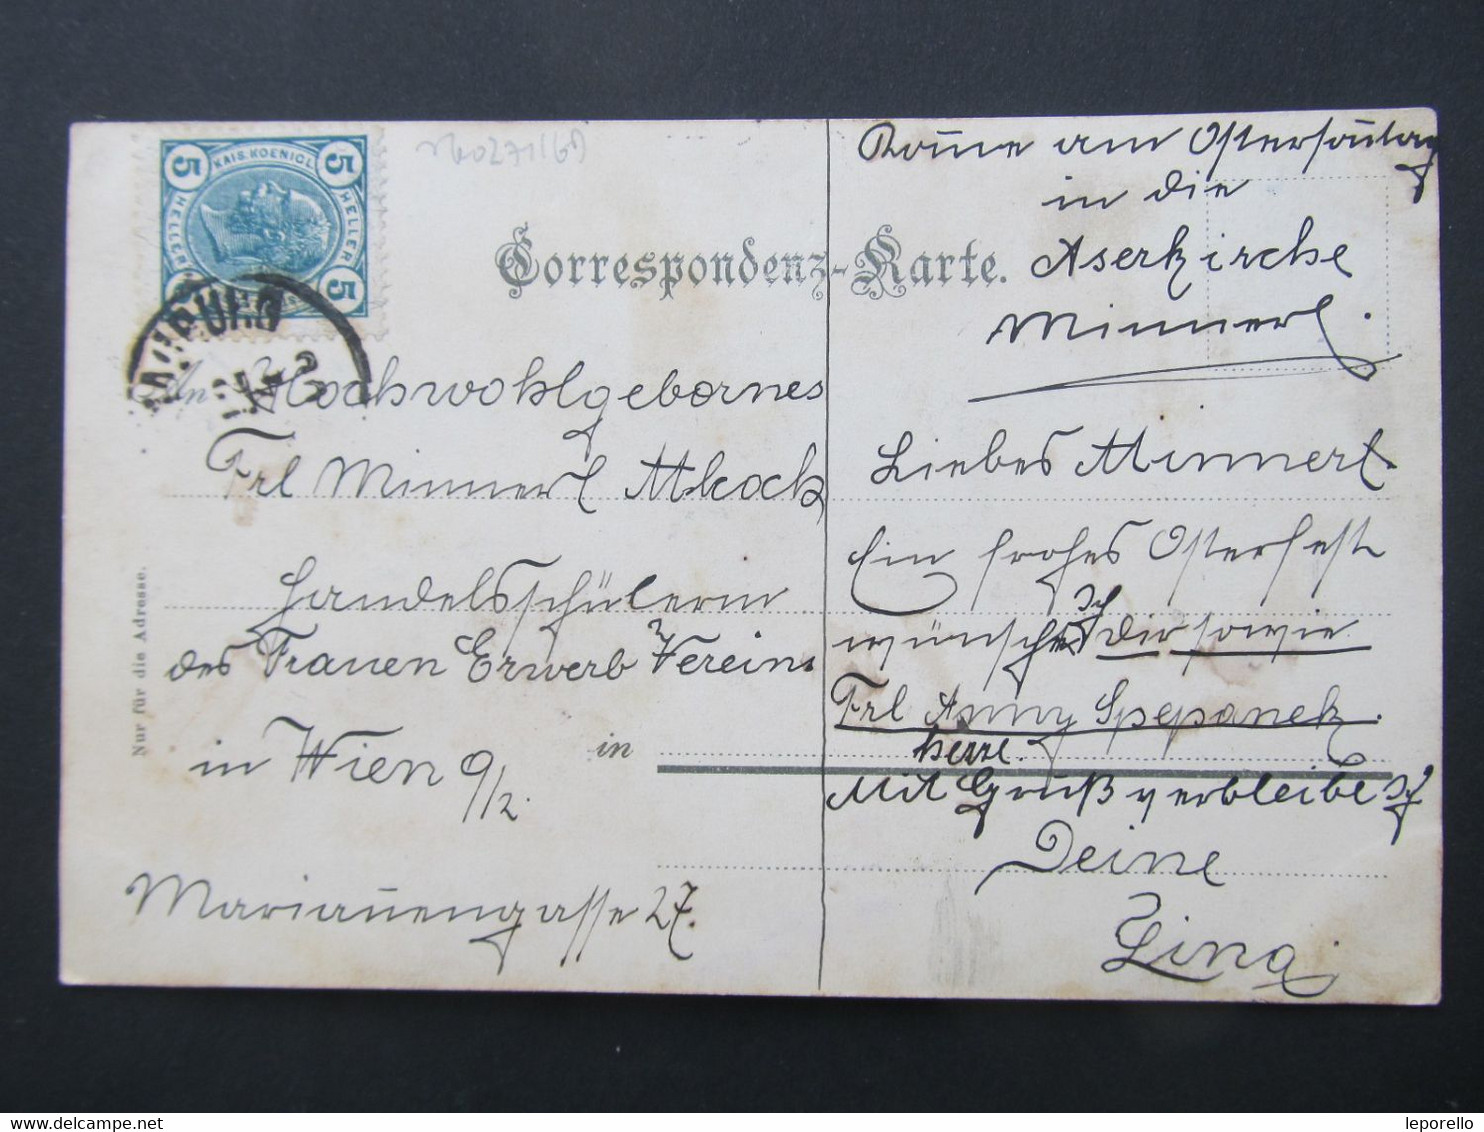 5 KAIS. KOENIGL. 5
HELLER HELLER
5
Correspondenz-Karte.
An Hochwohlgebornes
Frl Minnerl Mkock
Handelsschülerin
des Frauen Erwerb Vereins
in Wien 9/2.
in
Mariannengasse 27.
Nur für die Adresse.
Kome am Ostersontag
in die
Aserkirche
Minnerl.
Liebes Minnerl
Ein frohes Osterfest
wünsche ich dir sowie
Frl Anny
Mit Gruß verbleibe ich
Deine
Lina
leporello